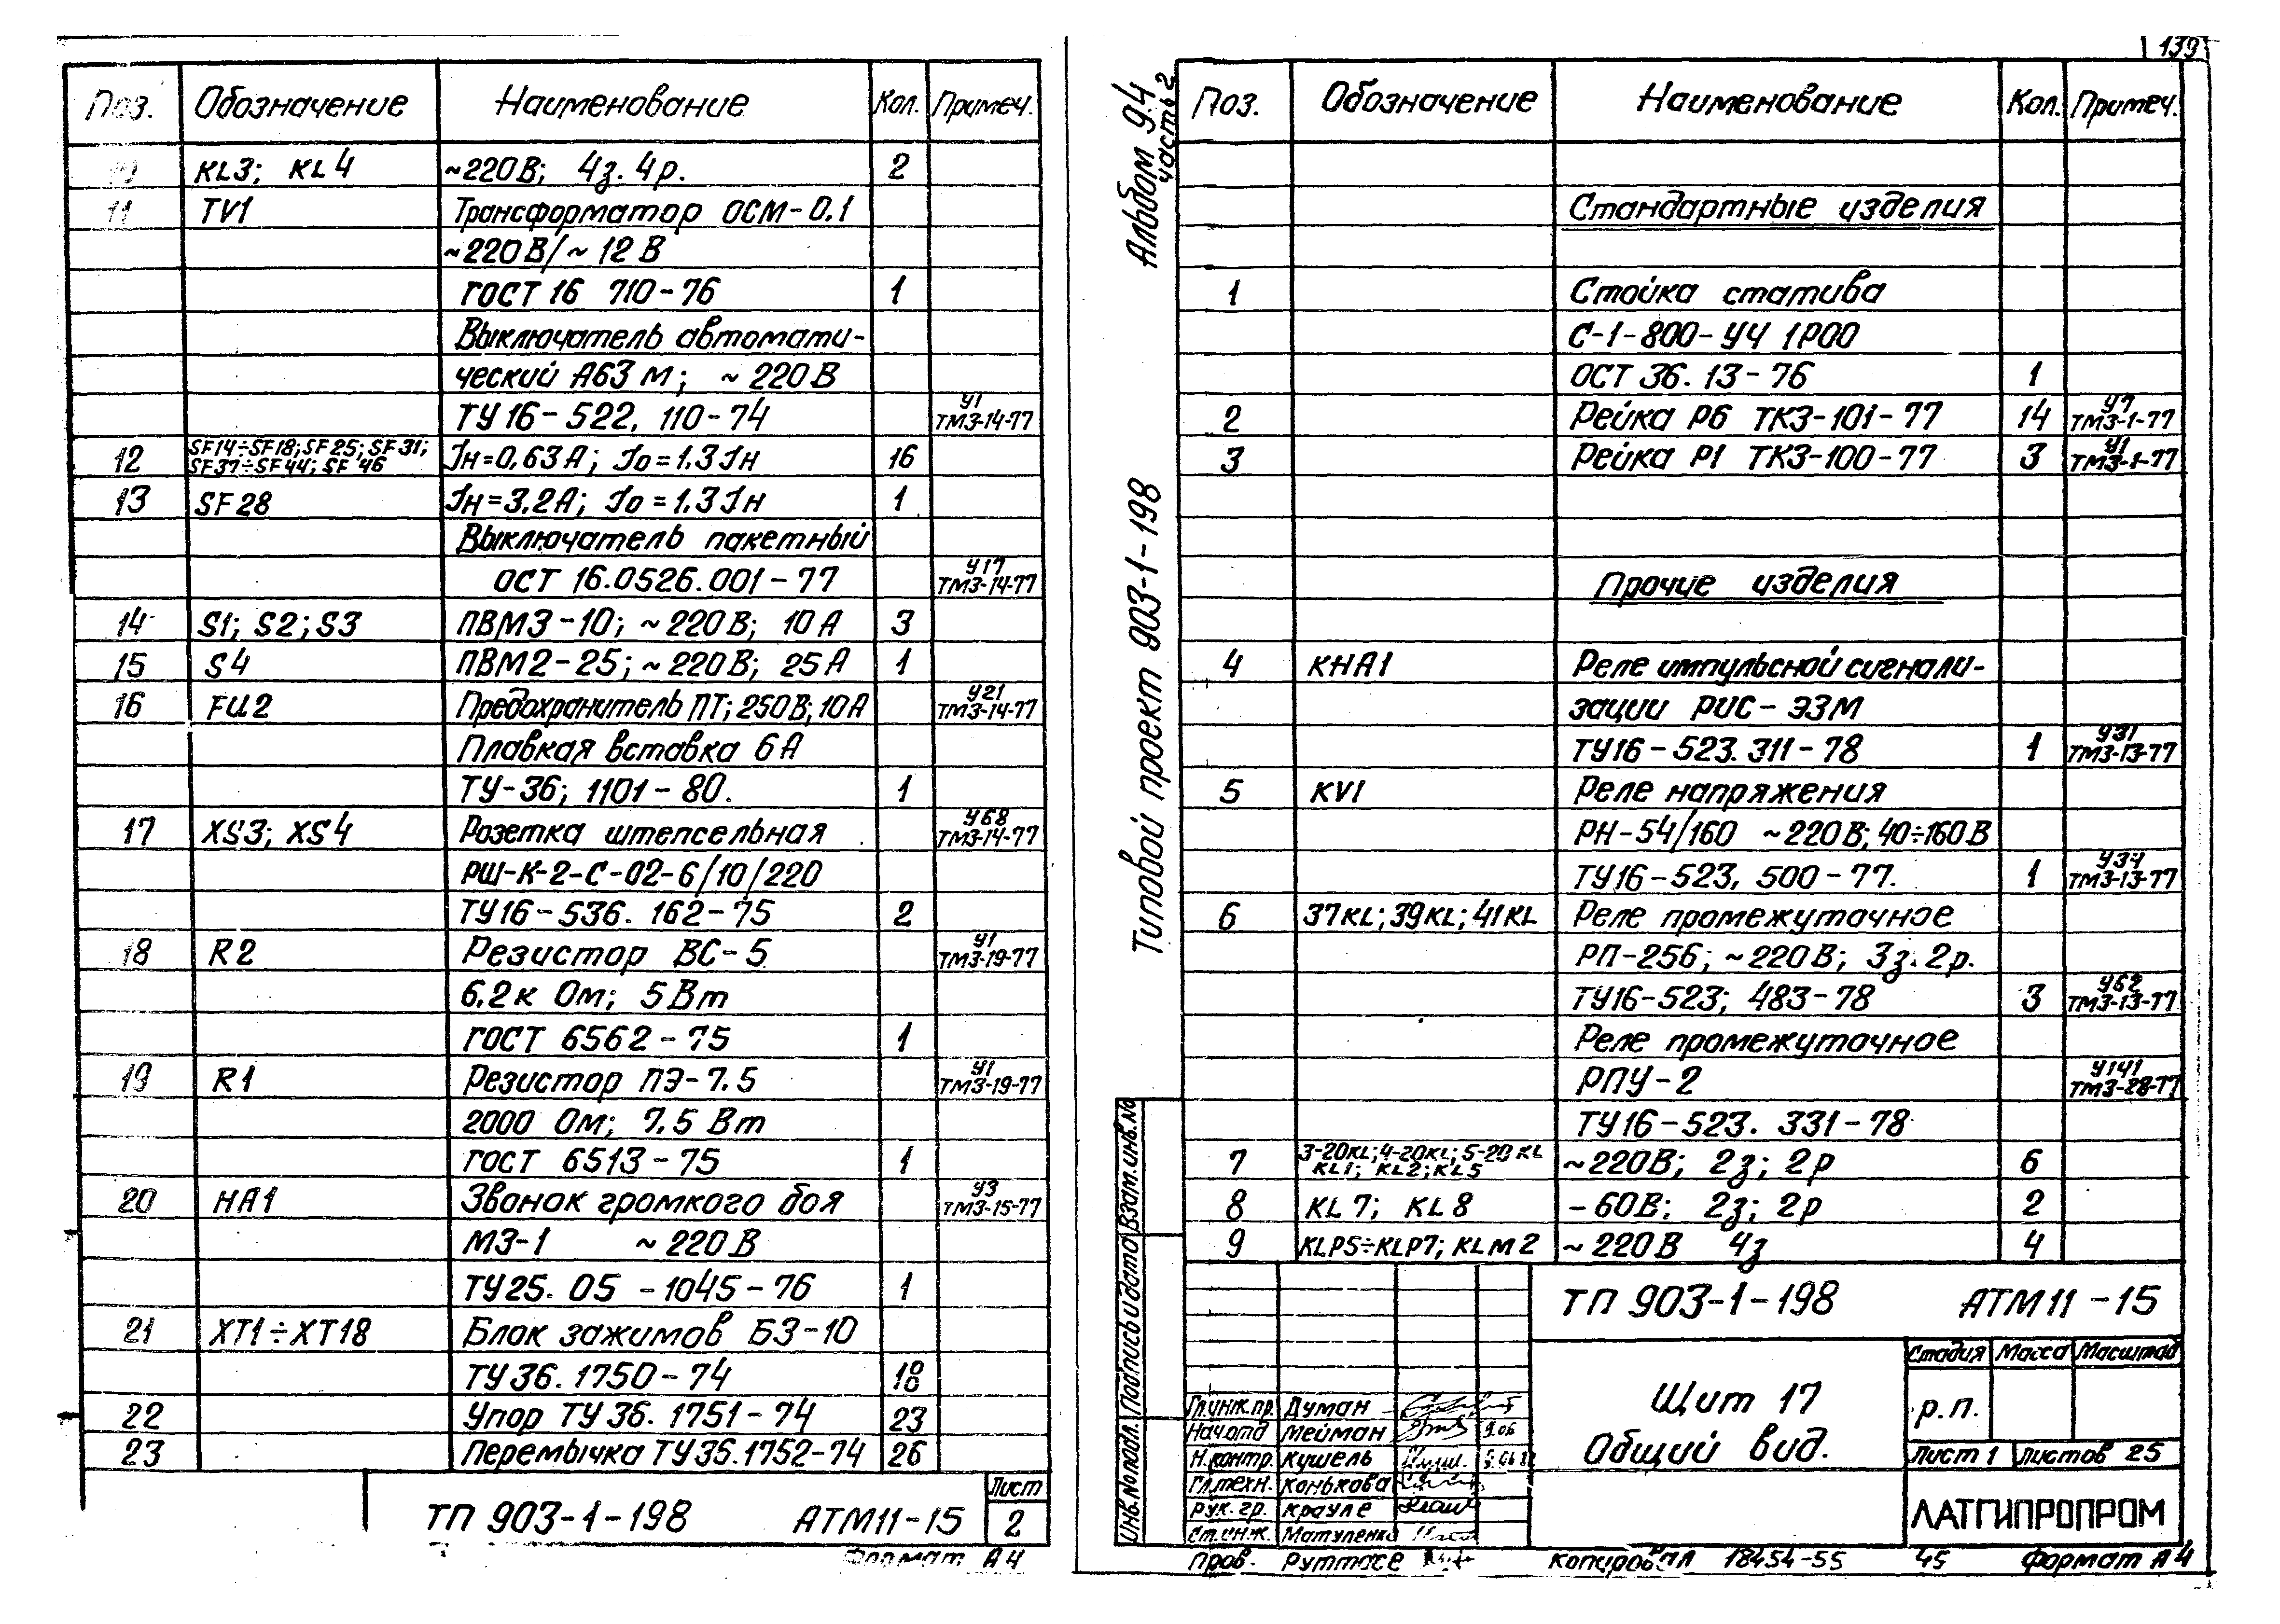 Поз. Обозначение Наименование Кол. Примеч.
10 KL3; KL4 ~220В; 4з. 4р. 2
11 TV1 Трансформатор ОСМ-0.1
~220В/~12В
ГОСТ 16 710-76 1
Выключатель автомати-
ческий А63М; ~220В
ТУ16-522, 110-74 У1 ТМ3-14-77
12 SF14÷SF18; SF25; SF31; SF37÷SF44; SF46 Iн=0,63А; Iо=1.3Iн 16
13 SF28 Iн=3.2А; Iо=1.3Iн 1
Выключатель пакетный
ОСТ 16.0526.001-77 У17 ТМ3-14-77
14 S1; S2; S3 ПВМ3-10; ~220В; 10А 3
15 S4 ПВМ2-25; ~220В; 25А 1
16 FU2 Предохранитель ПТ; 250В; 10А У21 ТМ3-14-77
Плавкая вставка 6А
ТУ-36; 1101-80. 1
17 XS3; XS4 Розетка штепсельная У68 ТМ3-14-77
РШ-К-2-С-02-6/10/220
ТУ16-536. 162-75 2
18 R2 Резистор ВС-5 У1 ТМ3-19-77
6.2к Ом; 5Вт
ГОСТ 6562-75 1
19 R1 Резистор ПЭ-7.5 У1 ТМ3-19-77
2000 Ом; 7.5 Вт
ГОСТ 6513-75 1
20 HA1 Звонок громкого боя У3 ТМ3-15-77
МЗ-1 ~220В
ТУ25. 05 -1045-76 1
21 XT1÷XT18 Блок зажимов БЗ-10
ТУ36. 1750-74 18
22 Упор ТУ36. 1751-74 23
23 Перемычка ТУ36.1752-74 26
ТП 903-1-198 АТМ11-15 Лист 2
Формат А4
139
Альбом 9.4
часть 2
Типовой проект 903-1-198
Поз. Обозначение Наименование Кол. Примеч.
Стандартные изделия
1 Стойка статива
С-1-800-УЧ 1Р00
ОСТ 36. 13-76 1
2 Рейка Р6 ТК3-101-77 14 У7 ТМ3-1-77
3 Рейка Р1 ТК3-100-77 3 У1 ТМ3-1-77
Прочие изделия
4 КНА1 Реле импульсной сигнали-
зации РИС-Э3М
ТУ16-523. 311-78 1 У31 ТМ3-13-77
5 KV1 Реле напряжения
РН-54/160 ~220В; 40÷160В
ТУ16-523, 500-77. 1 У34 ТМ3-13-77
6 37KL; 39KL; 41KL Реле промежуточное
РП-256; ~220В; 3з. 2р.
ТУ16-523; 483-78 3 У62 ТМ3-13-77
Реле промежуточное
РПУ-2 У141 ТМ3-28-77
ТУ16-523. 331-78
7 3-20KL; 4-20KL; 5-20KL KL1; KL2; KL5 ~220В; 2з; 2р 6
8 KL7; KL8 -60В; 2з; 2р 2
9 KLP5÷KLP7; KLM2 ~220В 4з 4
ТП 903-1-198 АТМ11-15
Щит 17
Общий вид.
Стадия Масса Масштаб
р.п.
Лист 1 Листов 25
ЛАТГИПРОПРОМ
Гл.инж.пр. Думан
Нач.отд Мейман 9.06
Н.контр. Кушель
Гл.техн. Конькова
Рук. гр. Крауле
Ст.инж. Матуленко
Пров. Руттасе
Инв.№подл. Подпись и дата Взам.инв.№
Копировал 18454-55 45 Формат А4